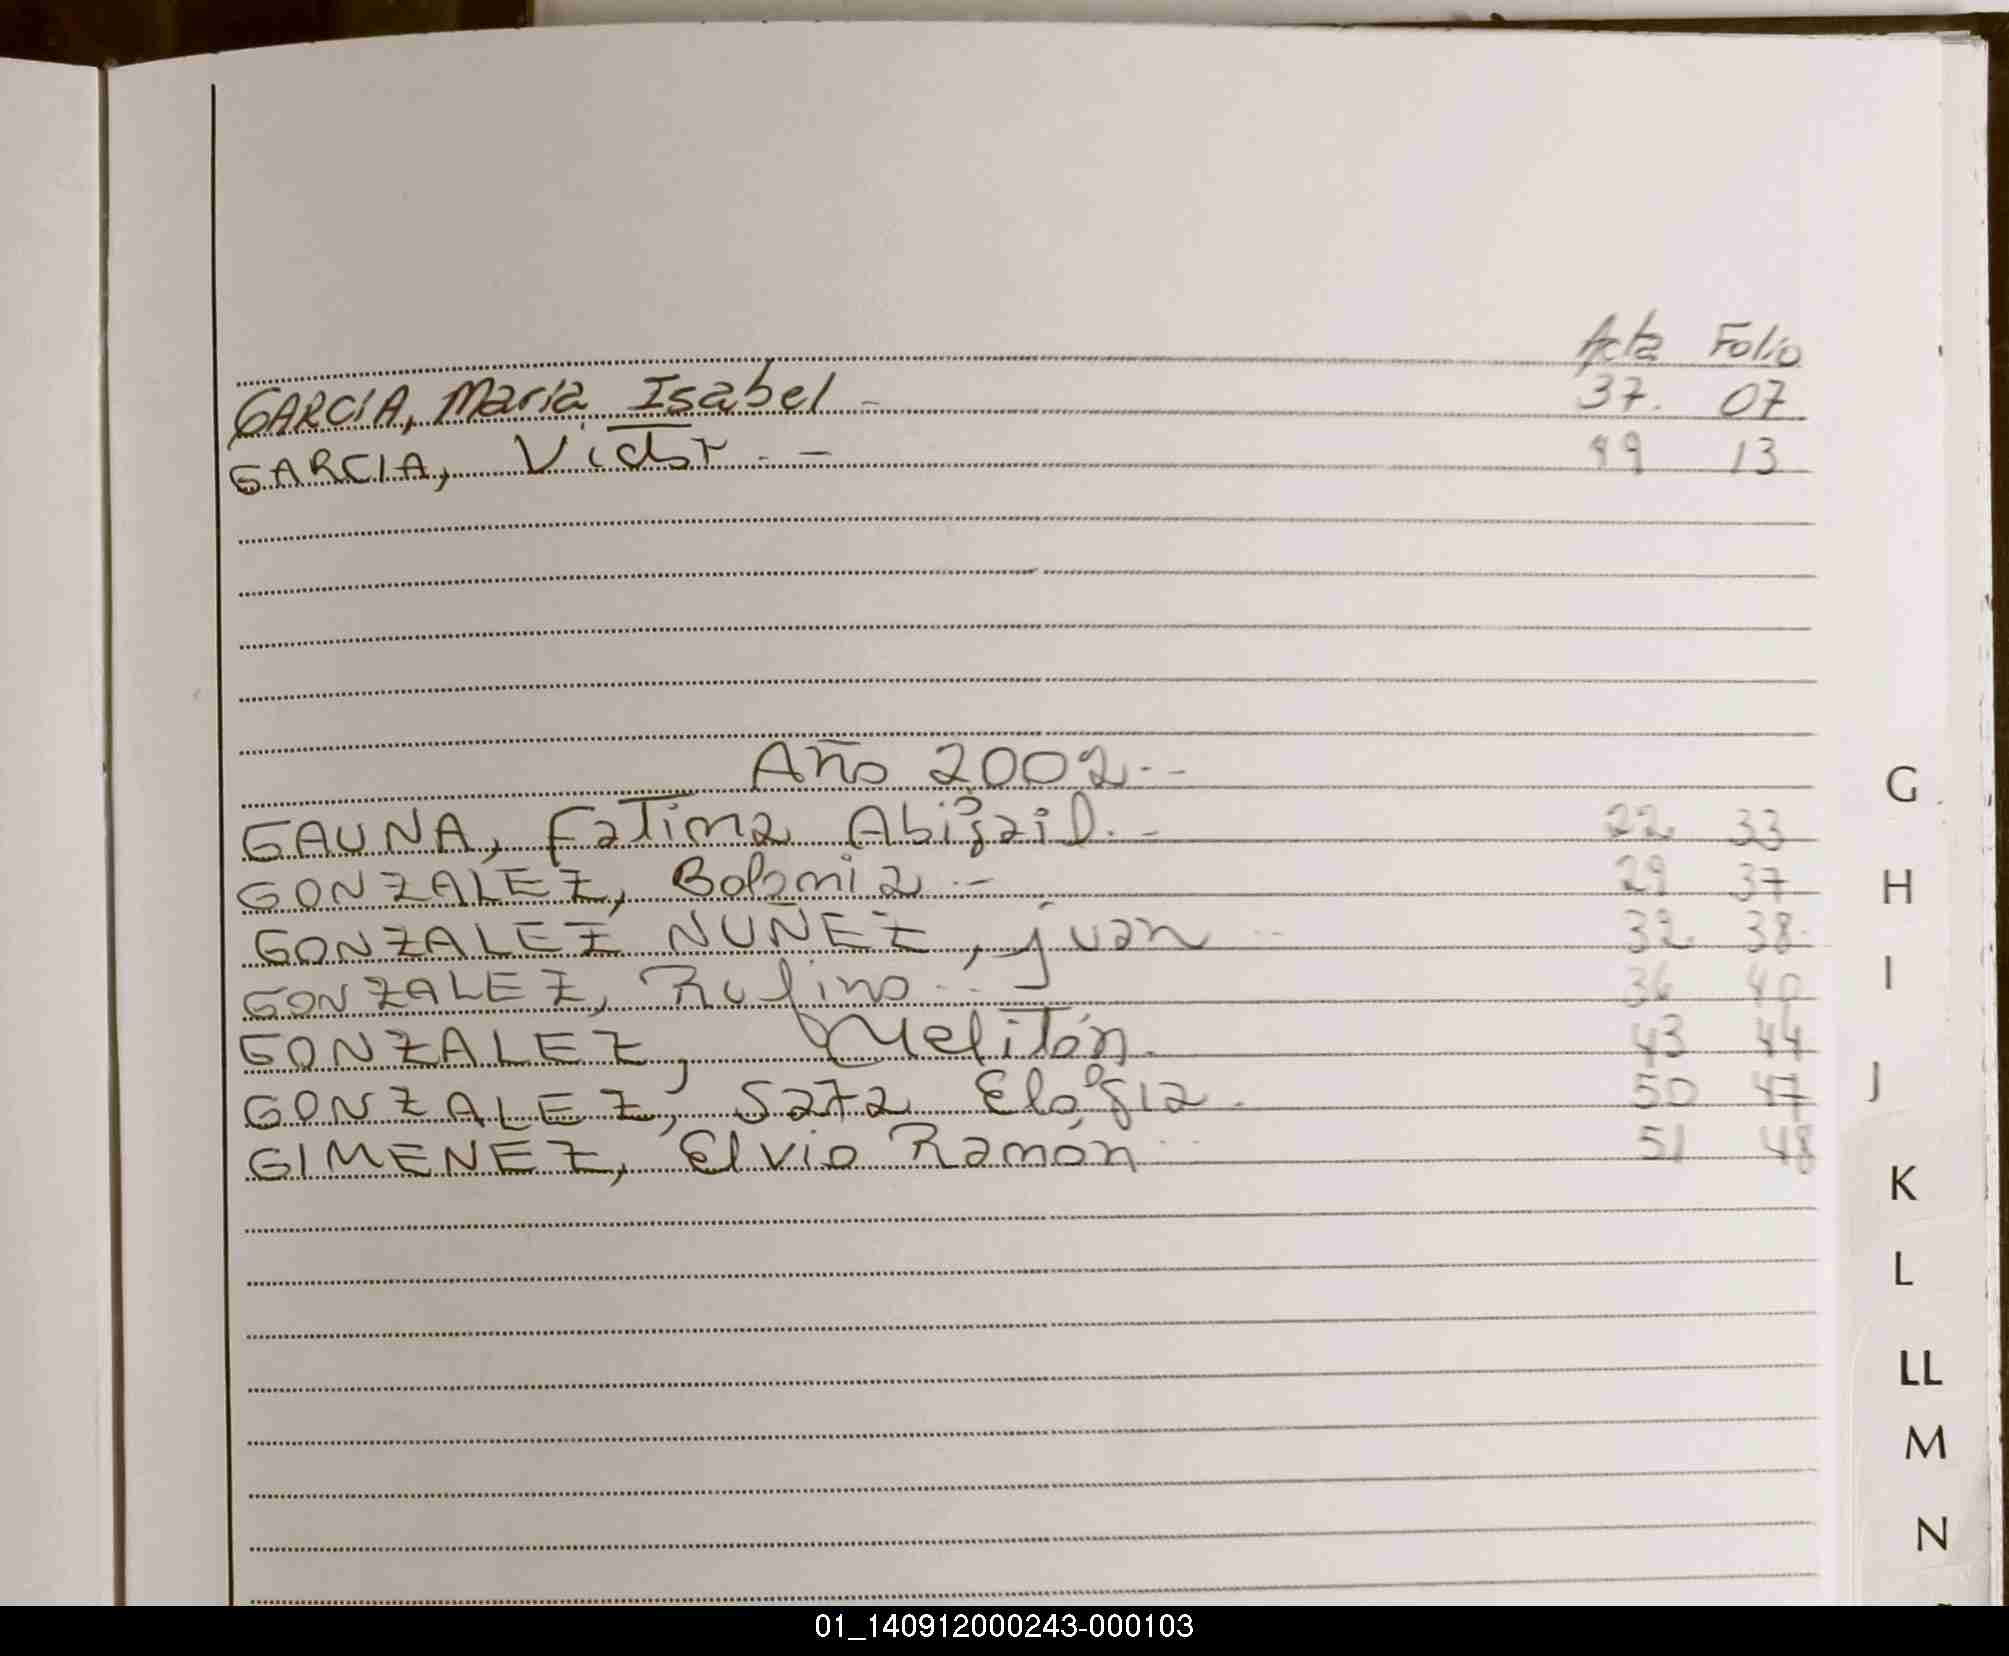 Acta Folio
GARCIA, Maria Isabel - 37. 07
GARCIA, Victor . - 49 13
Año 2002.--
GAUNA, Fatima Abigail. - 22 33
GONZALEZ, .- 29 37
GONZALEZ NUÑEZ, Juan -- 32 38
GONZALEZ, Rufino... 36 40
GONZALEZ, Melitón. 43 44
GONZALEZ, Sara Elogia. 50 47
GIMENEZ, Elvio Ramón -- 51 48
G
H
I
J
K
L
LL
M
N
01_140912000243-000103